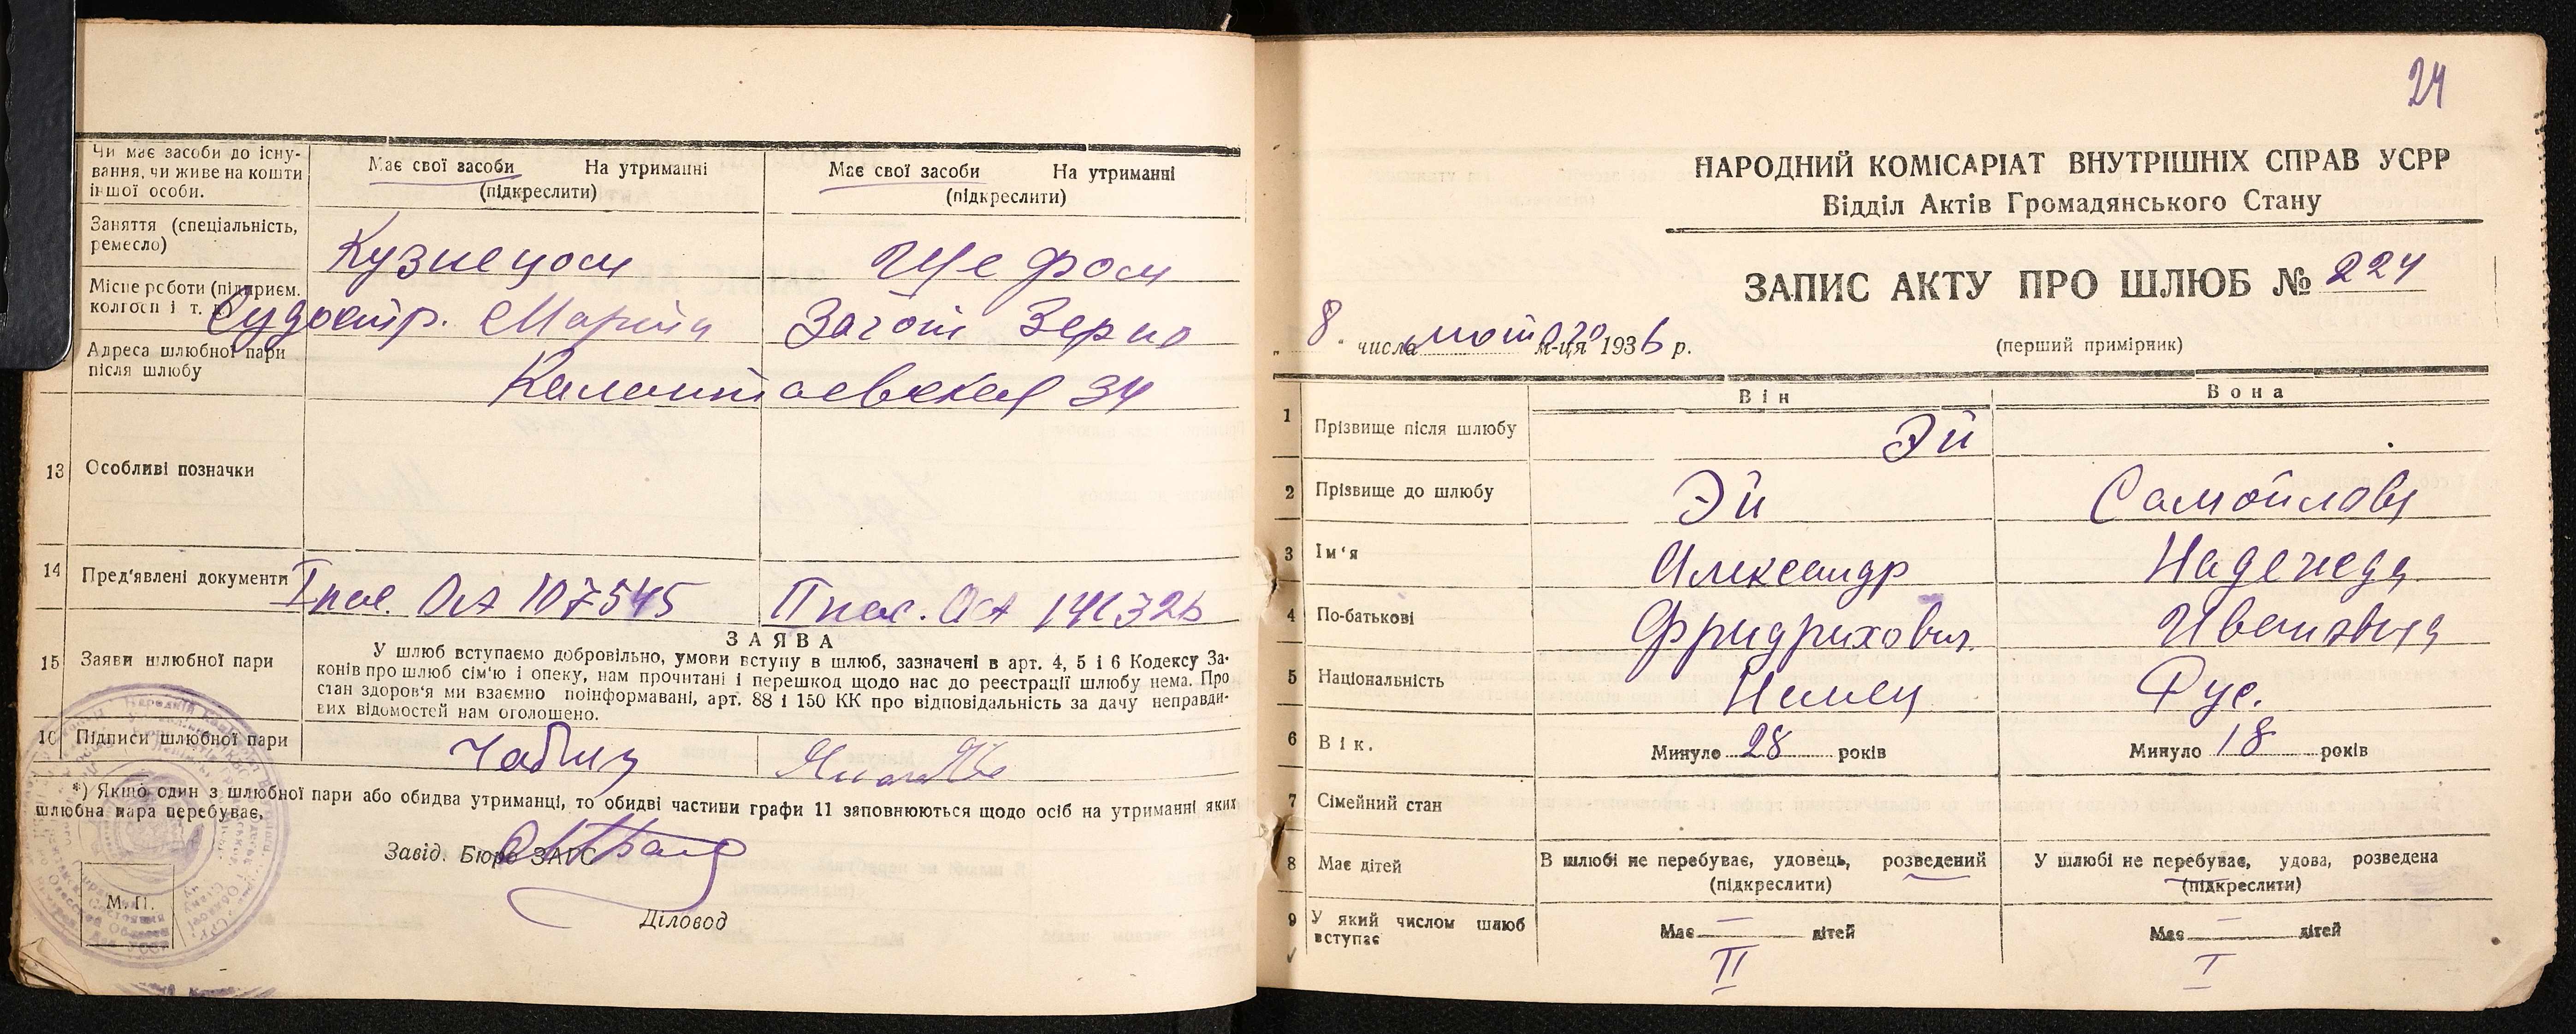 Чи має засоби до існу-
вання, чи живе на кошти
іншої особи.
Має свої засоби На утриманні
(підкреслити)
Має свої засоби На утриманні
(підкреслити)
Заняття (спеціальність,
ремесло)
Кузнецом
Шефом
Місце роботи (підприєм.
колгосп і т. п.)
Судостр. Марти
Загот Зерно
Адреса шлюбної пари
після шлюбу
34
13 Особливі позначки
14 Пред'явлені документи
I пас. 107545
II пас.
ЗАЯВА
15 Заяви шлюбної пари
У шлюб вступаємо добровільно, умови вступу в шлюб, зазначені в арт. 4, 5 і 6 Кодексу За-
конів про шлюб сім'ю і опеку, нам прочитані і перешкод щодо нас до реєстрації шлюбу нема. Про
стан здоров'я ми взаємно поінформавані, арт. 88 і 150 КК про відповідальність за дачу неправди-
вих відомостей нам оголошено.
16 Підписи шлюбної пари
*) Якщо один з шлюбної пари або обидва утриманці, то обидві частини графи 11 заповнюються щодо осіб на утриманні яких
шлюбна пара перебуває,
Завід. Бюро ЗАГС
М. П.
Діловод
24
НАРОДНИЙ КОМІСАРІАТ ВНУТРІШНІХ СПРАВ УСРР
Відділ Актів Громадянського Стану
ЗАПИС АКТУ ПРО ШЛЮБ № 224
„ 8 " числа лютого м-ця 1936 р.
(перший примірник)
Він
Вона
1 Прізвище після шлюбу
Эй
2 Прізвище до шлюбу
Эй
Самойлова
3 Ім'я
Александр
Надежда
4 По-батькові
Фридрихович
Ивановна
5 Національність
Немец
Рус.
6 Вік.
Минуло 28 років
Минуло 18 років
7 Сімейний стан
8 Має дітей
В шлюбі не перебуває, удовець, розведений
(підкреслити)
У шлюбі не перебуває, удова, розведена
(підкреслити)
9 У який числом шлюб
вступає
Має — дітей
Має — дітей
II
I